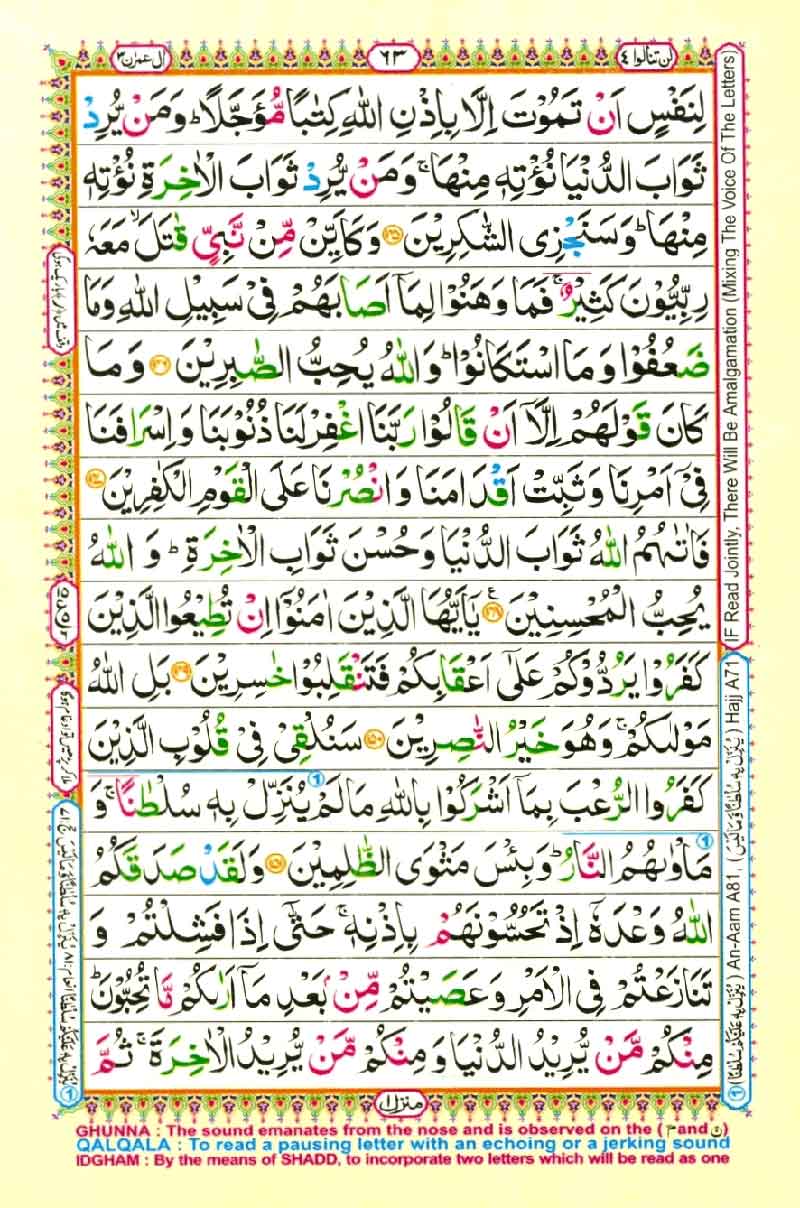 لن تنالوا ٤
٦٣
ال عمرٰن ٣
لِنَفْسٍ اَنْ تَمُوْتَ اِلَّا بِاِذْنِ اللّٰهِ كِتٰبًا مُّؤَجَّلًا ؕ وَ مَنْ يُّرِدْ
ثَوَابَ الدُّنْيَا نُؤْتِهٖ مِنْهَا ۚ وَ مَنْ يُّرِدْ ثَوَابَ الْاٰخِرَةِ نُؤْتِهٖ
مِنْهَا ؕ وَ سَنَجْزِی الشّٰكِرِيْنَ ﴿۱۴۵﴾ وَ كَاَيِّنْ مِّنْ نَّبِیٍّ قٰتَلَ ۙ مَعَهٗ
رِبِّيُّوْنَ كَثِيْرٌ ۚ فَمَا وَهَنُوْا لِمَاۤ اَصَابَهُمْ فِیْ سَبِيْلِ اللّٰهِ وَمَا
ضَعُفُوْا وَ مَا اسْتَكَانُوْا ؕ وَاللّٰهُ يُحِبُّ الصّٰبِرِيْنَ ﴿۱۴۶﴾ وَ مَا
كَانَ قَوْلَهُمْ اِلَّاۤ اَنْ قَالُوْا رَبَّنَا اغْفِرْ لَنَا ذُنُوْبَنَا وَ اِسْرَافَنَا
فِیْۤ اَمْرِنَا وَ ثَبِّتْ اَقْدَامَنَا وَ انْصُرْنَا عَلَی الْقَوْمِ الْكٰفِرِيْنَ ﴿۱۴۷﴾
فَاٰتٰىهُمُ اللّٰهُ ثَوَابَ الدُّنْيَا وَ حُسْنَ ثَوَابِ الْاٰخِرَةِ ؕ وَ اللّٰهُ
يُحِبُّ الْمُحْسِنِيْنَ ﴿۱۴۸﴾ ع يٰۤاَيُّهَا الَّذِيْنَ اٰمَنُوْۤا اِنْ تُطِيْعُوا الَّذِيْنَ
كَفَرُوْا يَرُدُّوْكُمْ عَلٰۤی اَعْقَابِكُمْ فَتَنْقَلِبُوْا خٰسِرِيْنَ ﴿۱۴۹﴾ بَلِ اللّٰهُ
مَوْلٰىكُمْ ۚ وَ هُوَ خَيْرُ النّٰصِرِيْنَ ﴿۱۵۰﴾ سَنُلْقِیْ فِیْ قُلُوْبِ الَّذِيْنَ
كَفَرُوا الرُّعْبَ بِمَاۤ اَشْرَكُوْا بِاللّٰهِ مَا لَمْ يُنَزِّلْ بِهٖ سُلْطٰنًا ۚ وَ
مَاْوٰىهُمُ النَّارُ ؕ وَ بِئْسَ مَثْوَی الظّٰلِمِيْنَ ﴿۱۵۱﴾ وَ لَقَدْ صَدَقَكُمُ
اللّٰهُ وَعْدَهٗۤ اِذْ تَحُسُّوْنَهُمْ بِاِذْنِهٖ ۚ حَتّٰۤی اِذَا فَشِلْتُمْ وَ
تَنَازَعْتُمْ فِی الْاَمْرِ وَ عَصَيْتُمْ مِّنْۢ بَعْدِ مَاۤ اَرٰىكُمْ مَّا تُحِبُّوْنَ ؕ
مِنْكُمْ مَّنْ يُّرِيْدُ الدُّنْيَا وَ مِنْكُمْ مَّنْ يُّرِيْدُ الْاٰخِرَةَ ۚ ثُمَّ
منزل ١
IF Read Jointly, There Will Be Amalgamation (Mixing The Voice Of The Letters)
١ (يُنَزِّلْ بِهٖ عَلَيْكُمْ سُلْطٰنًا) An-Aam A81, (يُنَزِّلْ بِهٖ سُلْطٰنًا وَّمَا لَيْسَ) Hajj A71
GHUNNA : The sound emanates from the nose and is observed on the (م and ن)
QALQALA : To read a pausing letter with an echoing or a jerking sound
IDGHAM : By the means of SHADD, to incorporate two letters which will be read as one